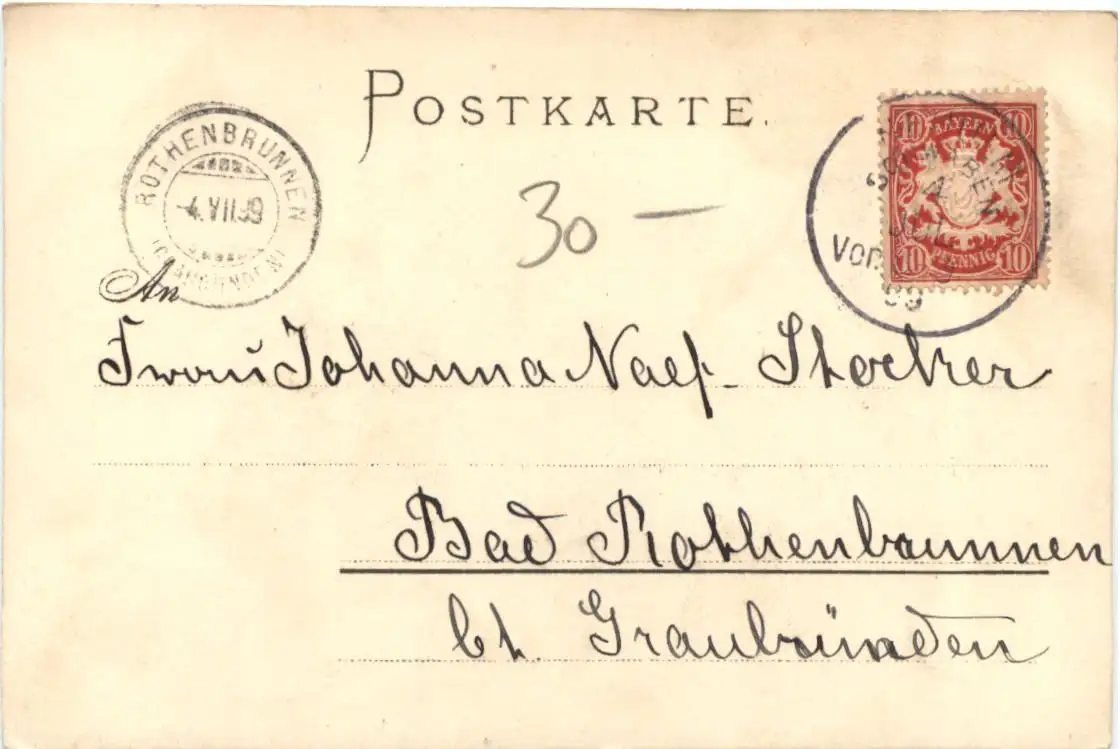 POSTKARTE.
ROTHENBRUNNEN
-4.VII.99
(GRAUBÜNDEN)
30 —
10 BAYERN 10
10 PFENNIG 10
4
JUL
Vor.
99
An
Frau Johanna Naef-Stocker
Bad Rothenbrunnen
Ct. Graubünden